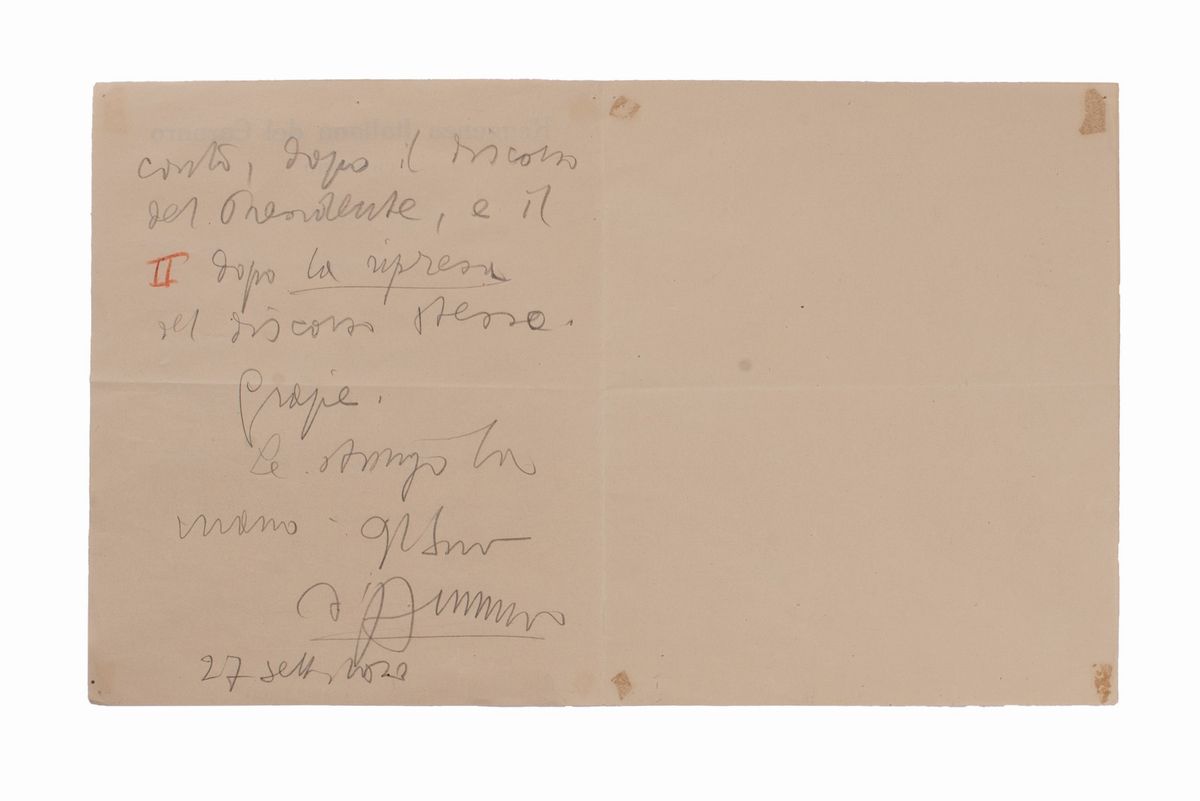 dopo il discorso
del Presidente, e il
II dopo la ripresa
del discorso stesso.
Grazie.
Le stringo la
mano. Il Suo
d'Annunzio
27 sett. 1920
Reggenza Italiana del Carnaro